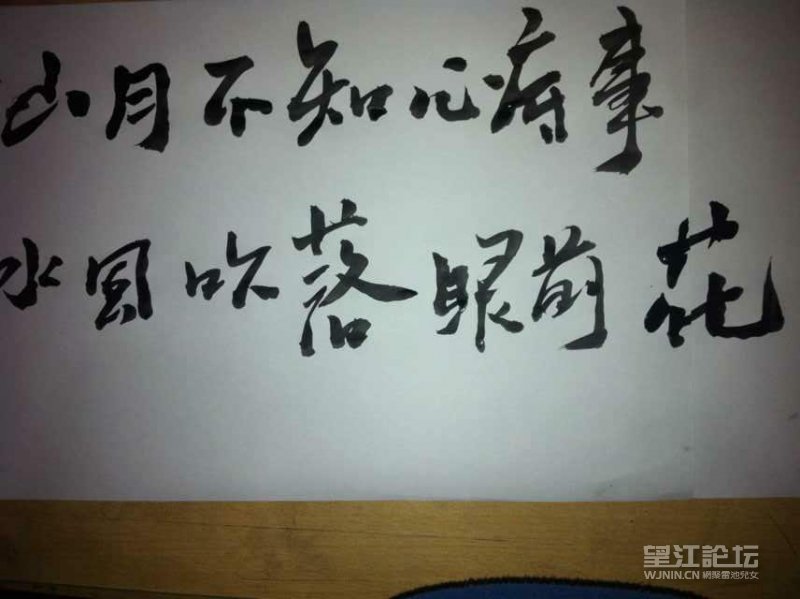 山月不知心病事
水風吹落眼前花
望江論坛
WJNIN.CN 網聚雷池兒女